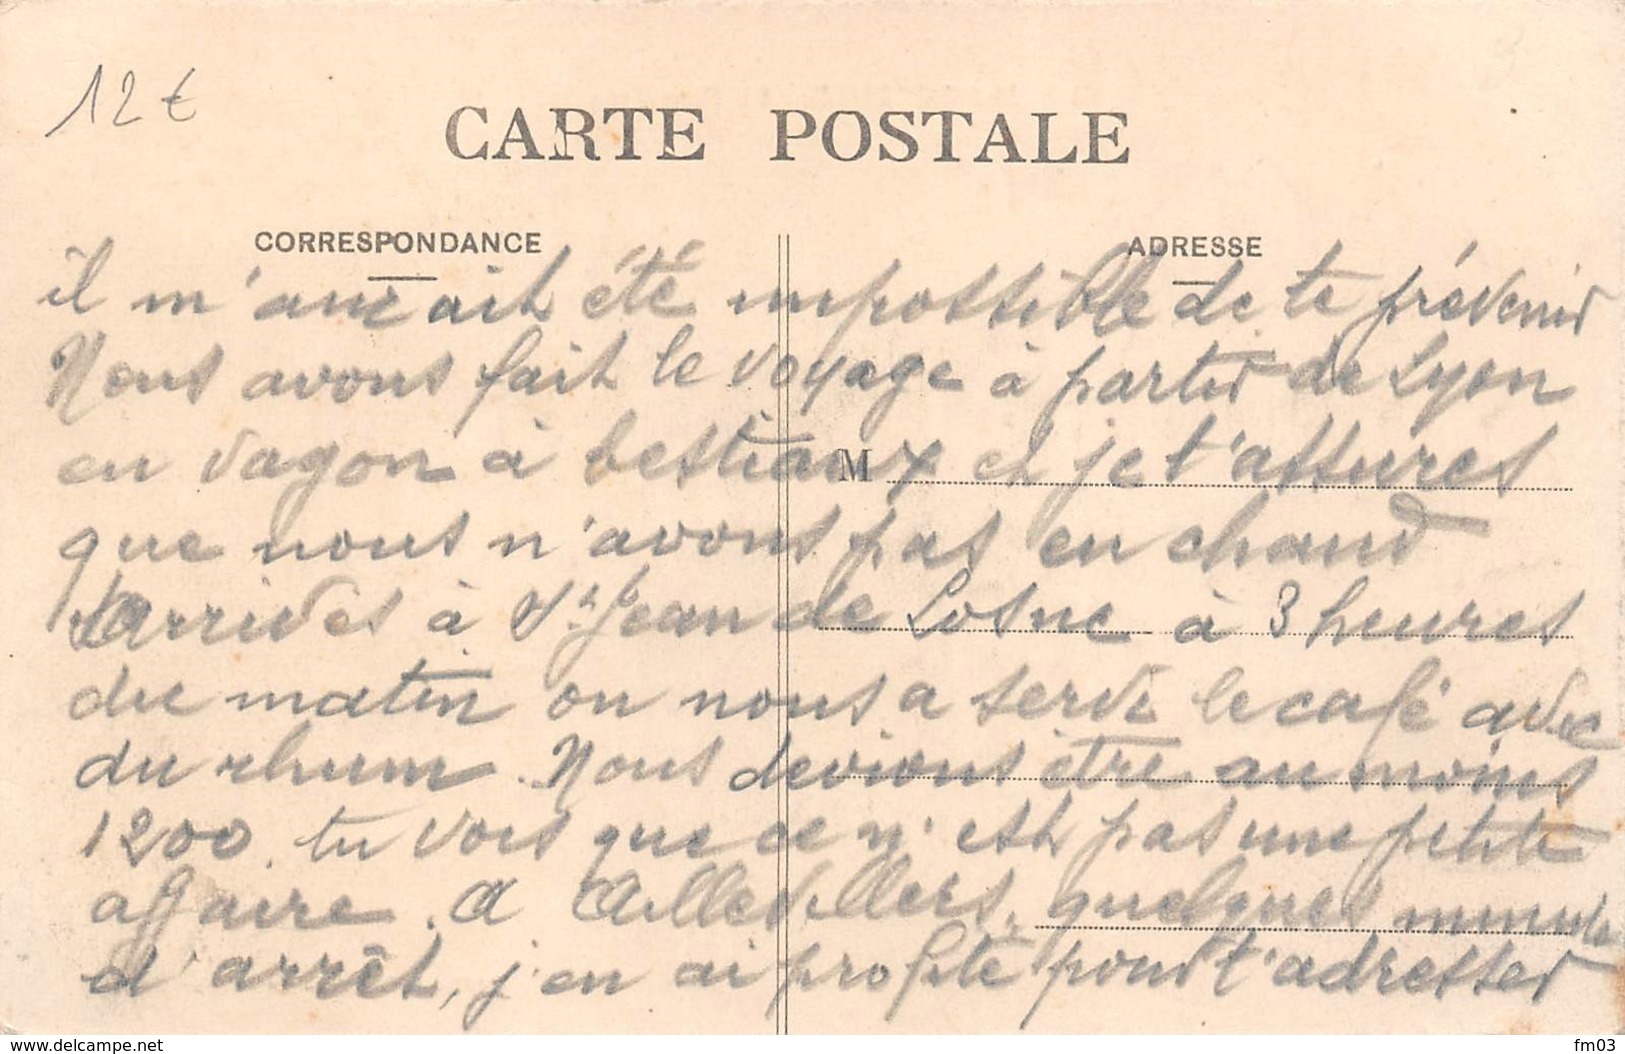 12 €
CARTE POSTALE
CORRESPONDANCE
ADRESSE
il m'aurait été impossible de te prévenir
Nous avons fait le voyage à partir de Lyon
en vagon à bestiaux et je t'assures
M
que nous n'avons pas eu chaud
Arrivés à St Jean de Losne à 3 heures
du matin on nous a servi le café avec
du rhum. Nous devions être au moins
1200. tu vois que ce n'est pas une petite
affaire. A Aillevillers, quelques minutes
d'arrêt, j'en ai profité pour t'adresser
www.delcampe.net
fm03